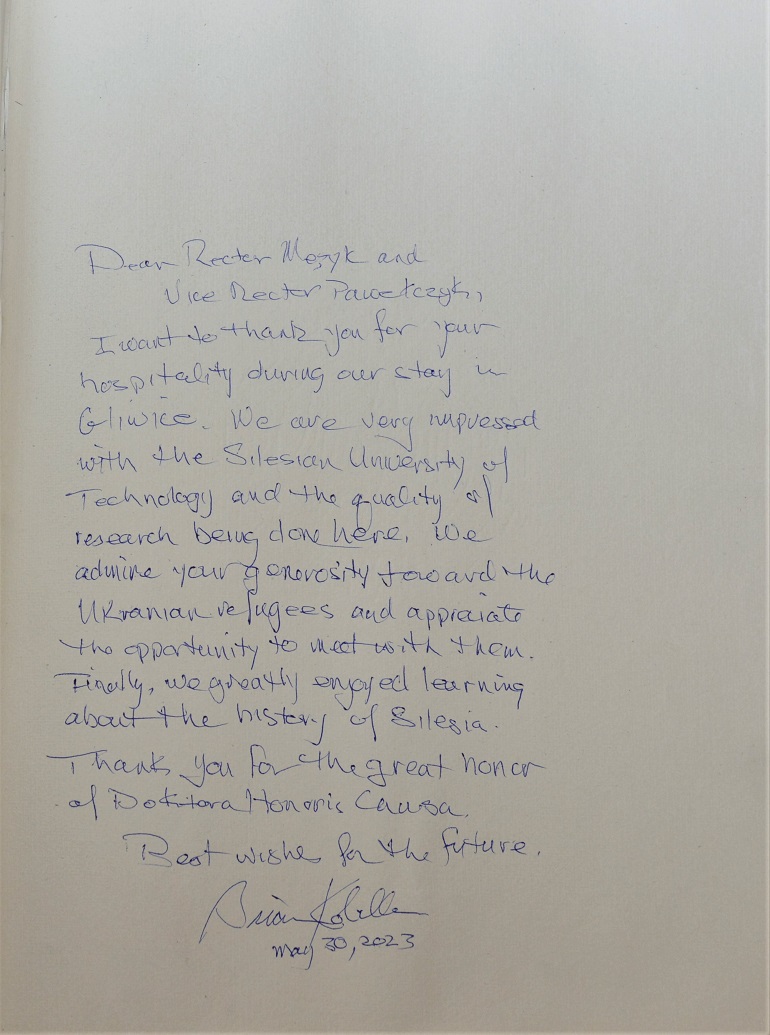 Dear Rector Mężyk and
Vice Rector Pawełczyk,
I want to thank you for your
hospitality during our stay in
Gliwice. We are very impressed
with the Silesian University of
Technology and the quality of
research being done here. We
admire your generosity toward the
Ukranian refugees and appreciate
the opportunity to meet with them.
Finally, we greatly enjoyed learning
about the history of Silesia.
Thank you for the great honor
of Doktora Honoris Causa.
Best wishes for the future.
Brian Kobilka
May 30, 2023